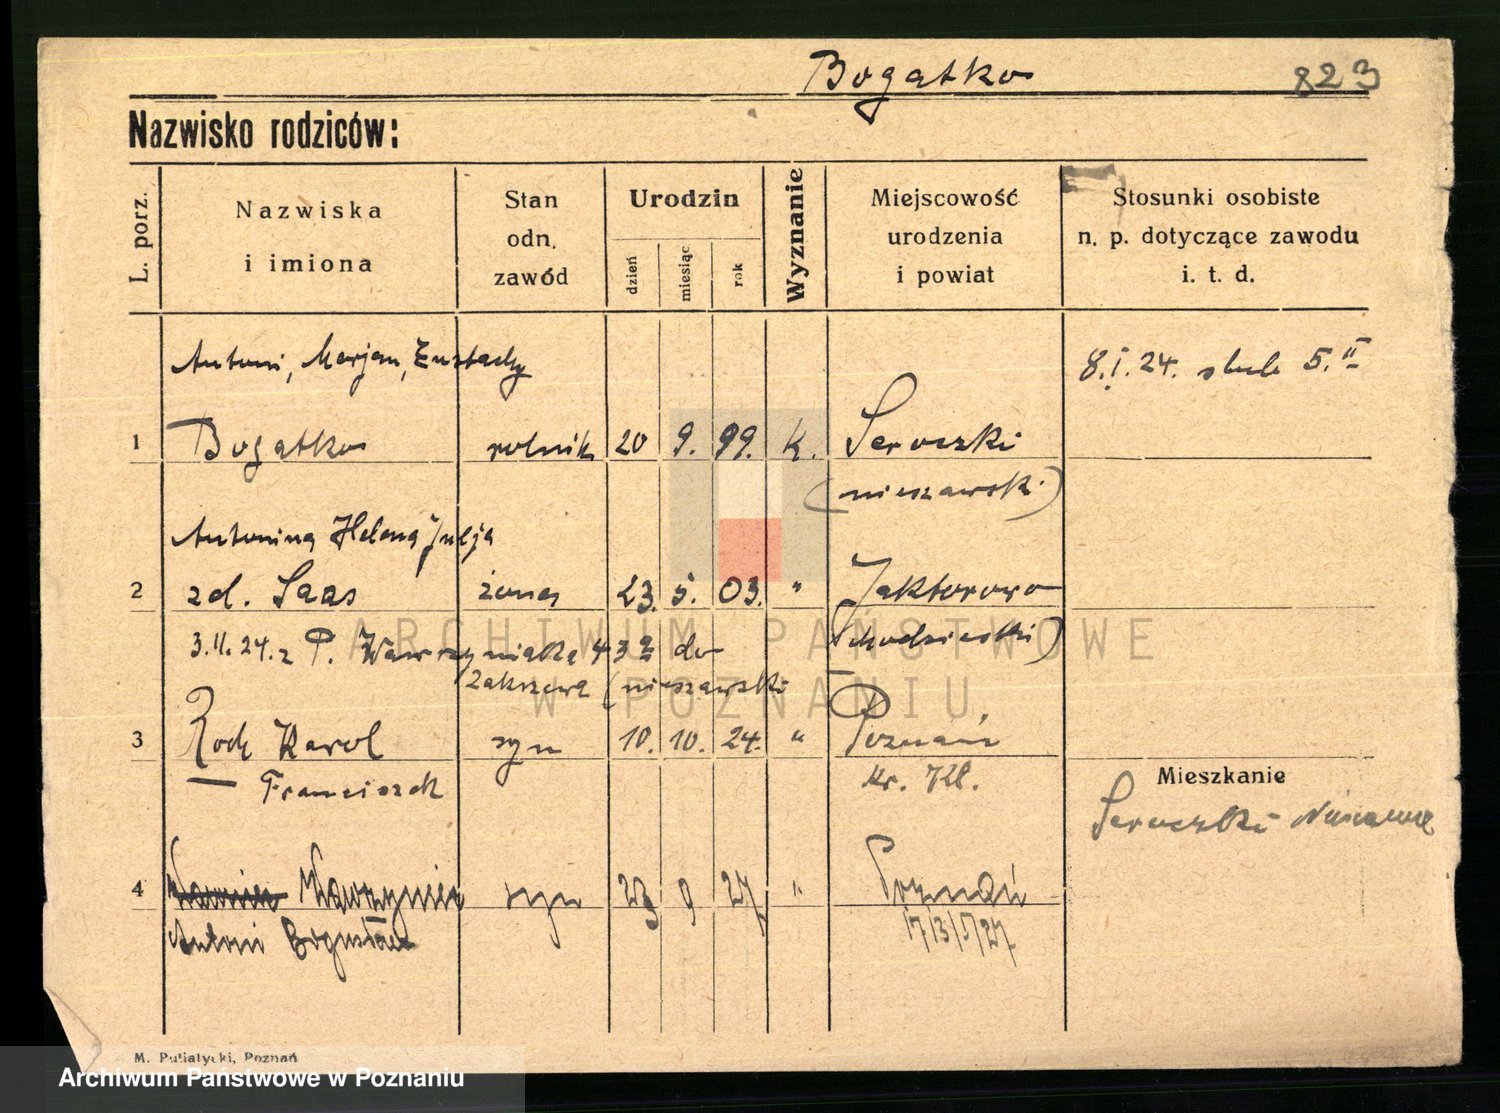 Bogatko 823
Nazwisko rodziców:
L. porz.
Nazwiska
i imiona
Stan
odn.
zawód
Urodzin
dzień
miesiąc
rok
Wyznanie
Miejscowość
urodzenia
i powiat
Stosunki osobiste
n. p. dotyczące zawodu
i. t. d.
Antoni, Marjan, Eustachy
8.I.24. 5.II
1 Bogatko rolnik 20 9. 99. k. Seroczki
(nieszawski)
Antonina Helena Julja
2 zd. Saas żona 23. 5. 03. " Jaktorowo
3.II.24. z P. Wawrzyniaka 43 do (chodzieski)
Zakrzewa (nieszawski
3 Roch Karol syn 10. 10. 24. " Poznań
Franciszek
Mieszkanie
Seroczki
4 Wawrzyniec syn 23 9 27 " Poznań
Antoni Bogusław
M. Putiatycki, Poznań
ARCHIWUM PAŃSTWOWE
W POZNANIU
Archiwum Państwowe w Poznaniu